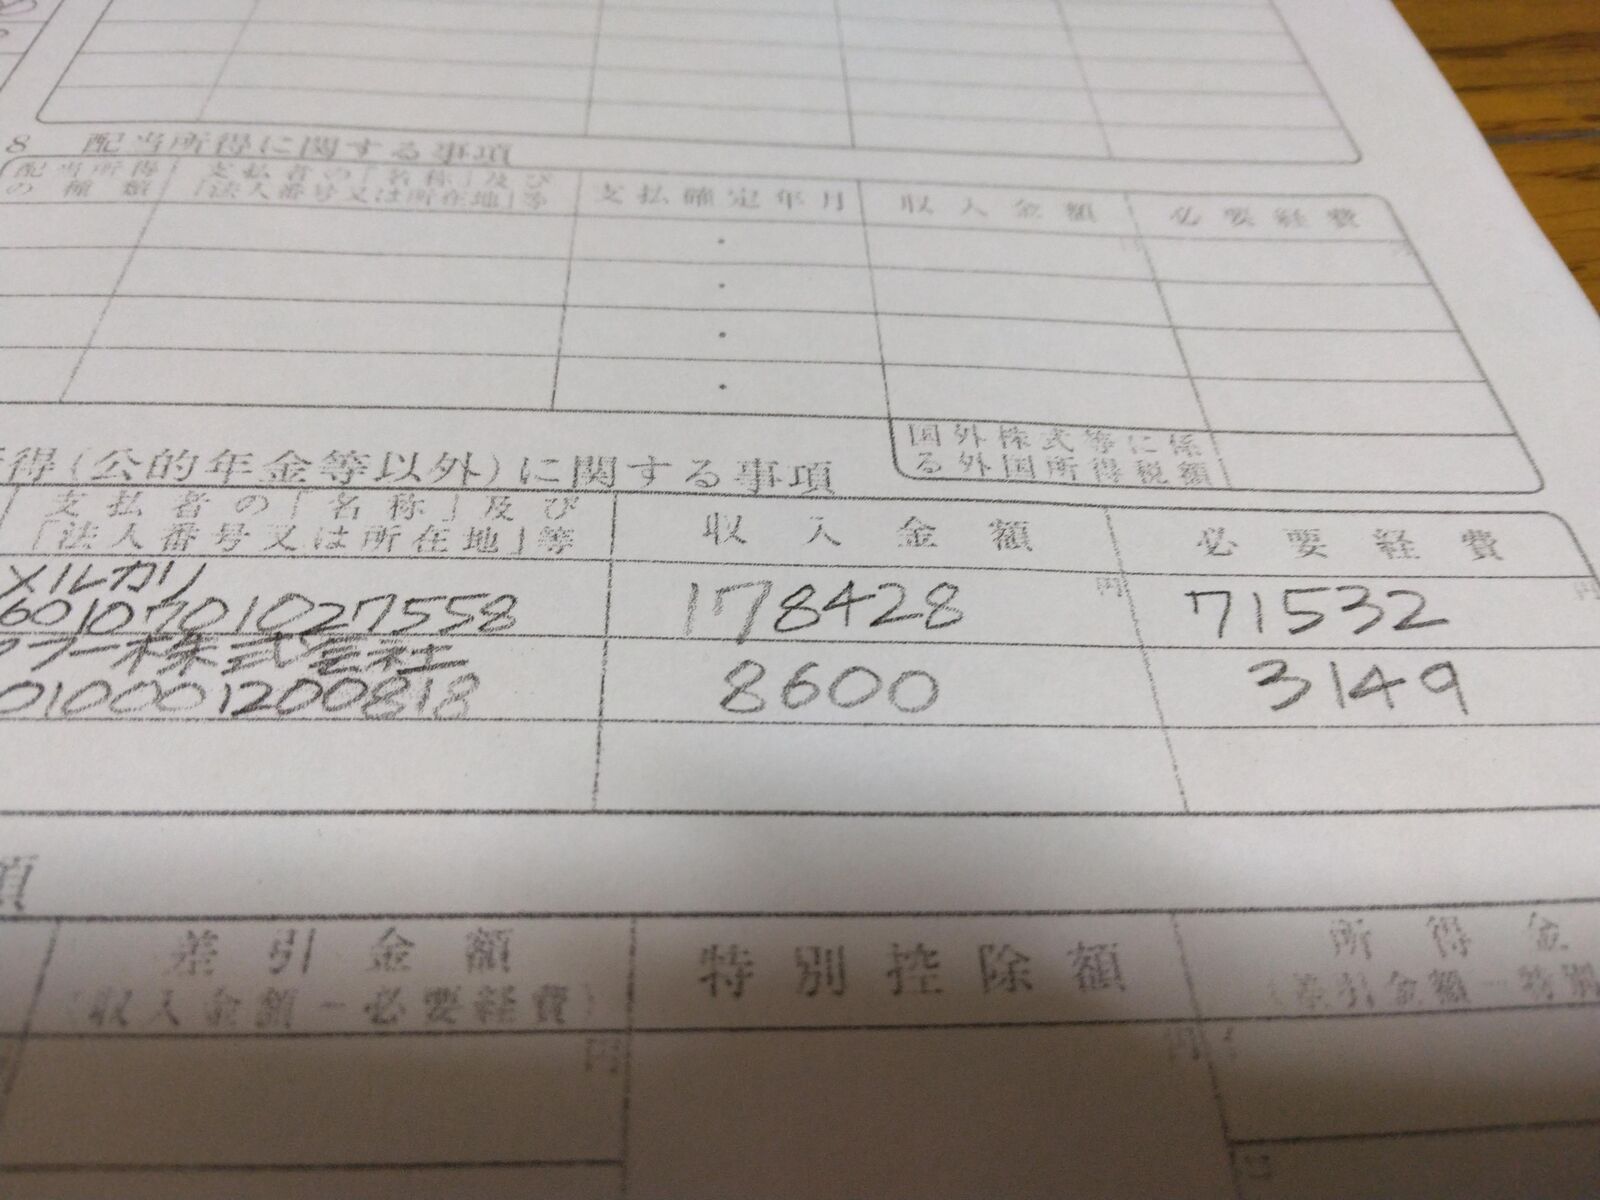 8 配当所得に関する事項
配当所得の種類
支払者の「名称」及び「法人番号又は所在地」等
支払確定年月
収入金額
必要経費
円
国外株式等に係る外国所得税額
得(公的年金等以外)に関する事項
支払者の「名称」及び「法人番号又は所在地」等
収入金額
必要経費
メルカリ
6010701027558
178428
円
71532
円
フー株式会社
010001200818
8600
3149
項
差引金額
(収入金額-必要経費)
特別控除額
所得金
(差引金額-特別
円
円